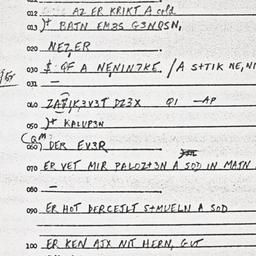 012 AZ ER KRIKT A sold
013 )+ BATN EMES G3NQSN,
020 NEZER
030 $ GF A NENIN7KE /A S+TIK NE,NI
031 —
040 ZAT,IK,3V3T DZ3X QI —AP
050 )+ KALUP3N
(QM:
060 DER EV3R
070 ER VET MIR PALOZ+3N A SOD IN MATN
080 —
090 ER HOT DERCEJLT S+MUELN A SOD
100 ER KEN AJX NIT HERN, GUT